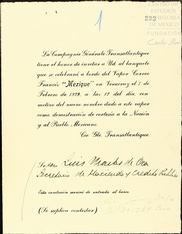 1
222
La Compagnie Générale Transatlantique
tiene el honor de invitar a Ud. al banquete
que se celebrará a bordo del Vapor Correo
Francés "Mexique" en Veracruz el 5 de
Febrero de 1929, a las 12 del día, con
motivo del nuevo nombre dado a este vapor
como demostración de cortesía a la Nación
y al Pueblo Mexicano.
Cie. Gle. Transatlantique.
Señor Luis Montes de Oca
Secretario de Hacienda y Crédito Público
Esta invitación servirá de entrada al barco.
(Se suplica contestar)